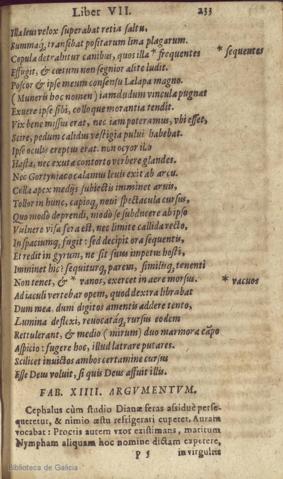 Liber VII. 233
Illa leui velox superabat retia saltu,
Summaq́; transibat positarum lina plagarum.
Copula detrahitur canibus, quos illa * frequentes * sequentes
Effugit, & cœtum non segnior alite ludit.
Poscor & ipse meum consensu Lælapa magno.
( Muneris hoc nomen) iamdudum vincula pugnat
Exuere ipse sibi, colloque morantia tendit.
Vix bene missus erat, nec iam poteramus, vbi esset,
Scire, pedum calidus vestigia puluis habebat.
Ipse oculis ereptus erat. non ocyor illo
Hasta, nec excussæ contorto verbere glandes.
Nec Gortyniaco calamus leuis exit ab arcu.
Collis apex medijs subiectis imminet aruis,
Tollor in hunc, capioq́; noui spectacula cursus,
Quo modò deprendi, modò se subducere ab ipso
Vulnere visa fera est, nec limite callida recto,
In spaciumq́; fugit: sed decipit ora sequentis,
Et redit in gyrum, ne sit suus impetus hosti,
Imminet hic: sequiturq́; parem, similisq́; tenenti
Non tenet, & * vanos, exercet in aere morsus. * vacuos
Ad iaculi vertebar opem, quod dextra librabat
Dum mea. dum digitos amentis addere tento,
Lumina deflexi, reuocatáq; rursus eodem
Rettulerant, & medio ( mirum) duo marmora cāpo
Aspicio: fugere hoc, illud latrare putares.
Scilicet inuictos ambos certamine cursus
Esse Deus voluit, si quis Deus affuit illis.
FAB. XIIII. ARGVMENTVM.
Cephalus cùm studio Dianæ feras assiduè perse-
queretur, & nimio æstu refrigerari cuperet, Auram
vocabat: Procris autem vxor existimans, maritum
Nympham aliquam hoc nomine dictam expetere,
P 5 in virgultis
Biblioteca de Galicia